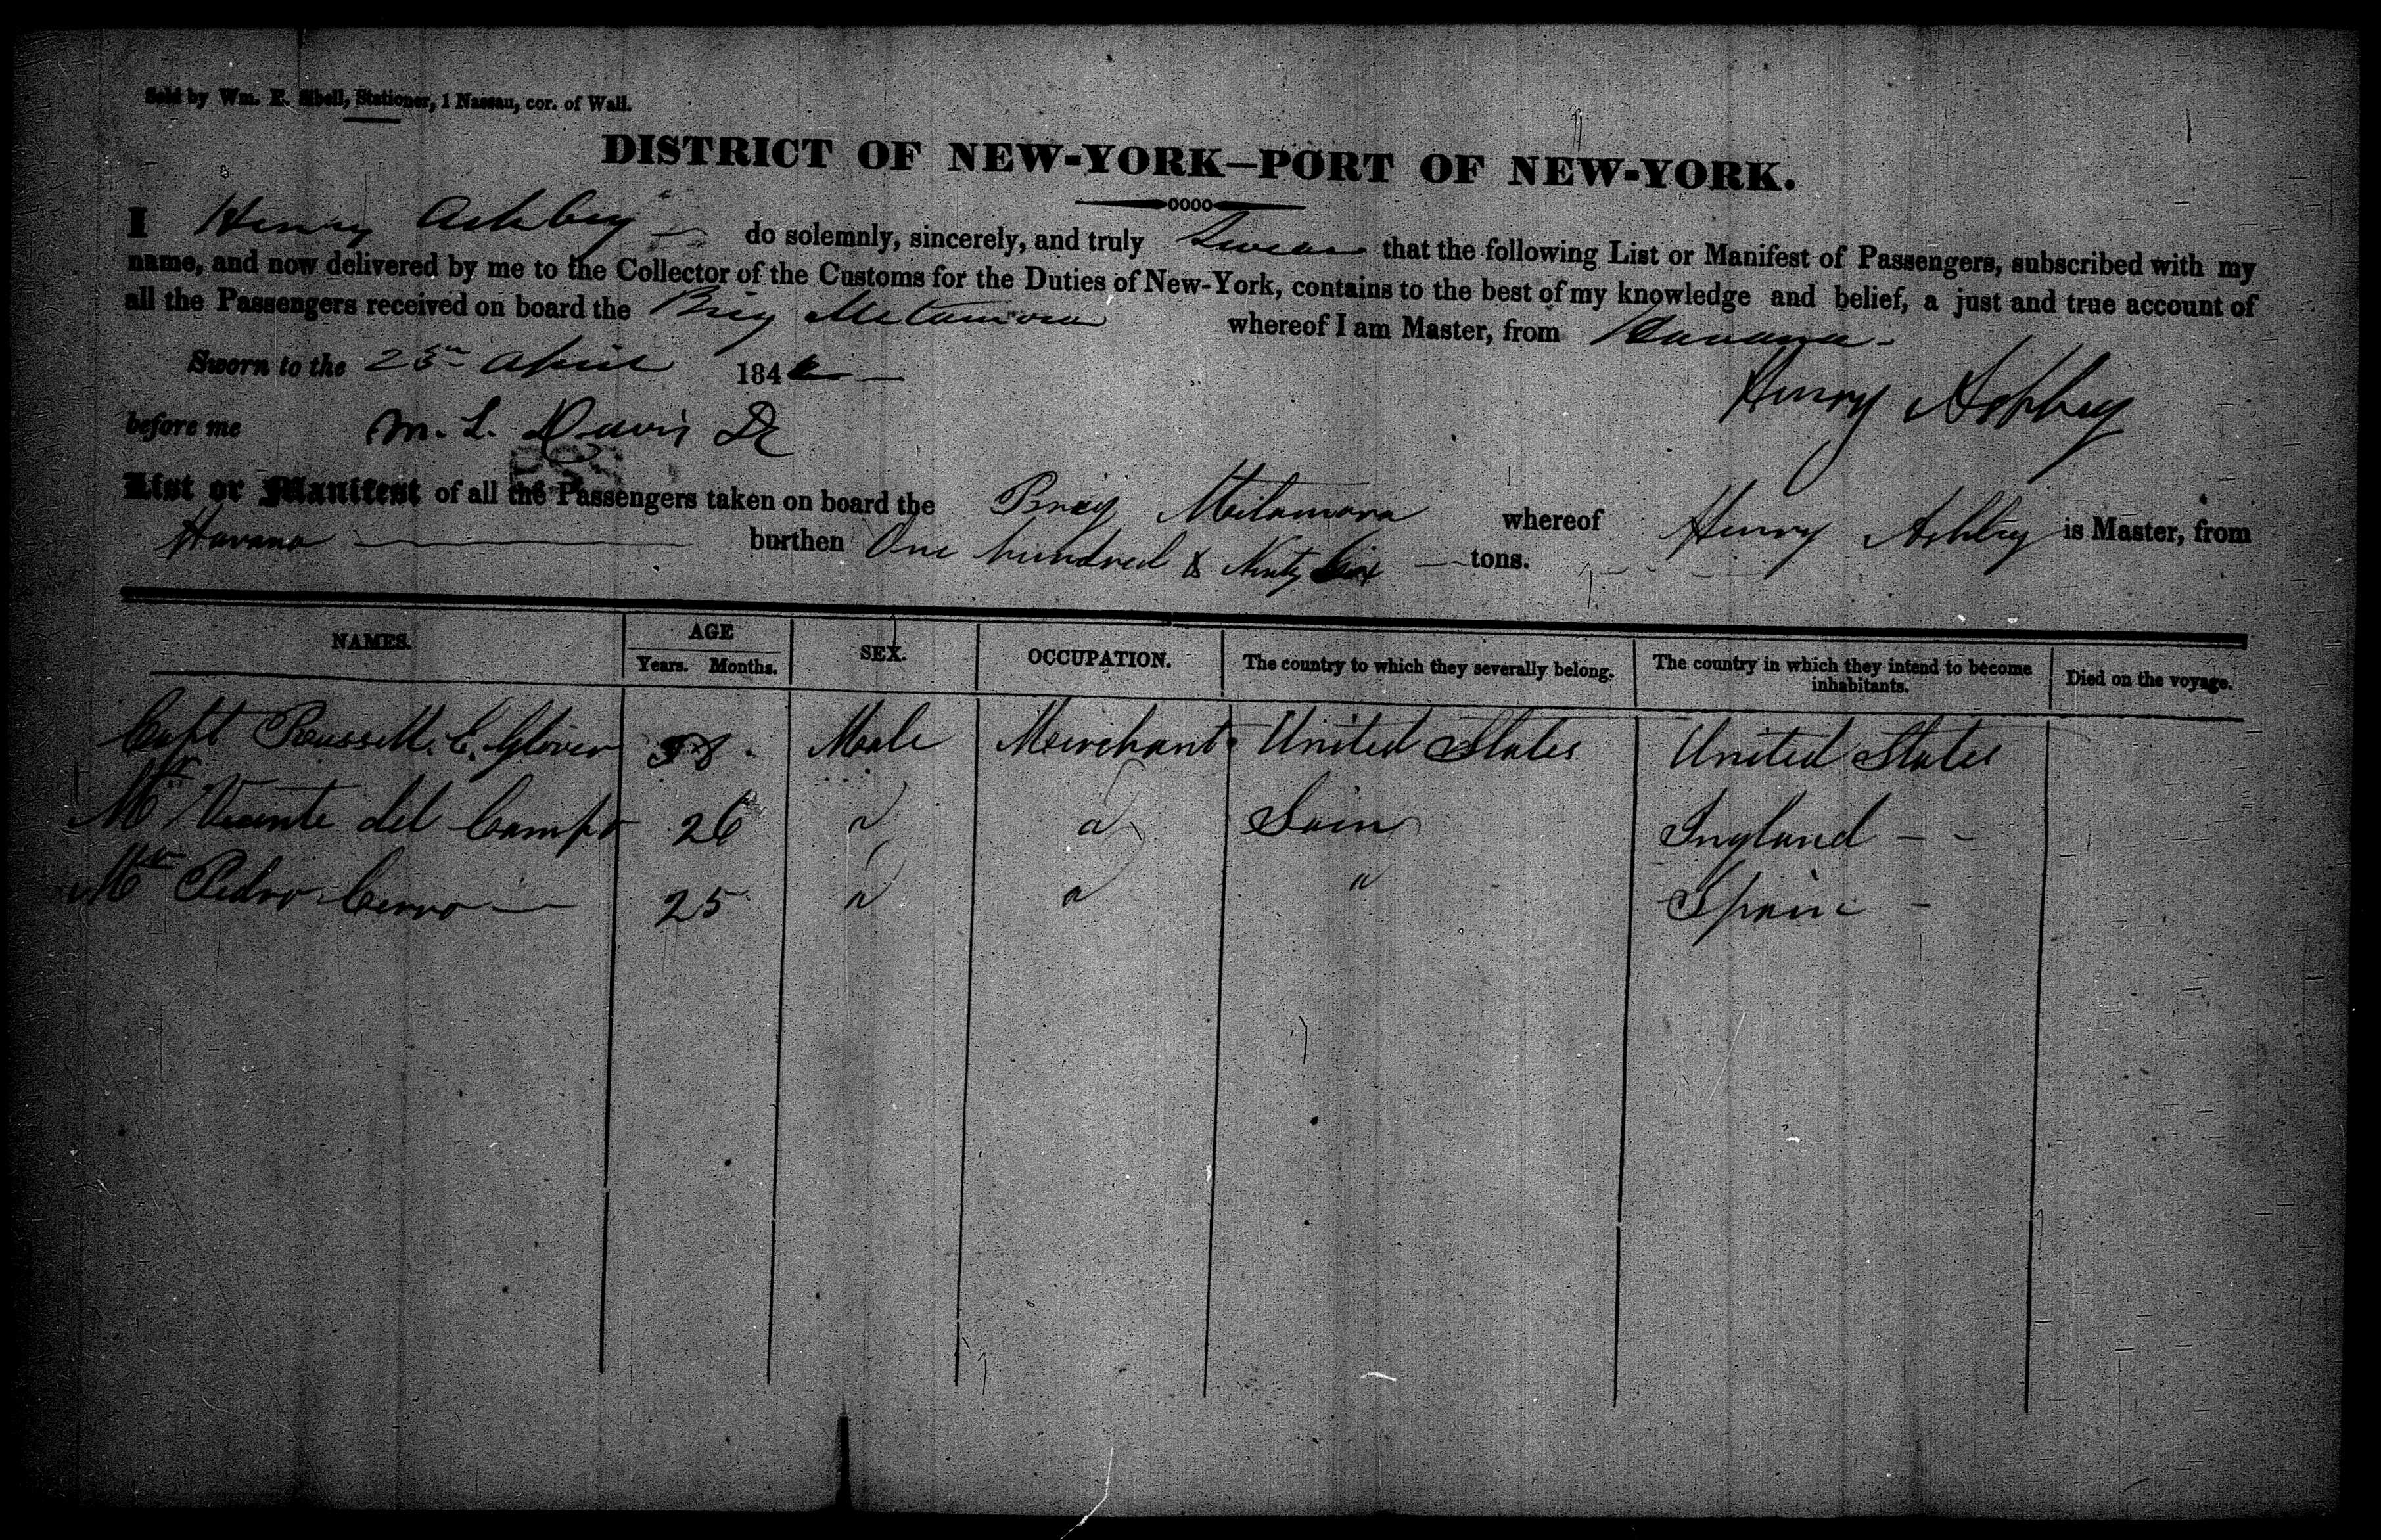 Sold by Wm. E. Sibell, Stationer, 1 Nassau, cor. of Wall.
DISTRICT OF NEW-YORK—PORT OF NEW-YORK.
I Henry Ashbey do solemnly, sincerely, and truly Swear that the following List or Manifest of Passengers, subscribed with my
name, and now delivered by me to the Collector of the Customs for the Duties of New-York, contains to the best of my knowledge and belief, a just and true account of
all the Passengers received on board the Brig Metamora whereof I am Master, from Havana -
Sworn to the 25th April 184
Henry Ashbey
before me M. L. Davis
List or Manifest of all the Passengers taken on board the Brig Metamora whereof Henry Ashbey is Master, from
Havana burthen One hundred & Ninty Six tons.
NAMES. AGE SEX. OCCUPATION. The country to which they severally belong. The country in which they intend to become inhabitants. Died on the voyage.
Years. Months.
Capt Russell E. Glover 38 Male Merchant United States United States
Mr Vicente del Campo 26 " " Spin Ingland - -
Mr Pedro Cerro — 25 " " " Spain -